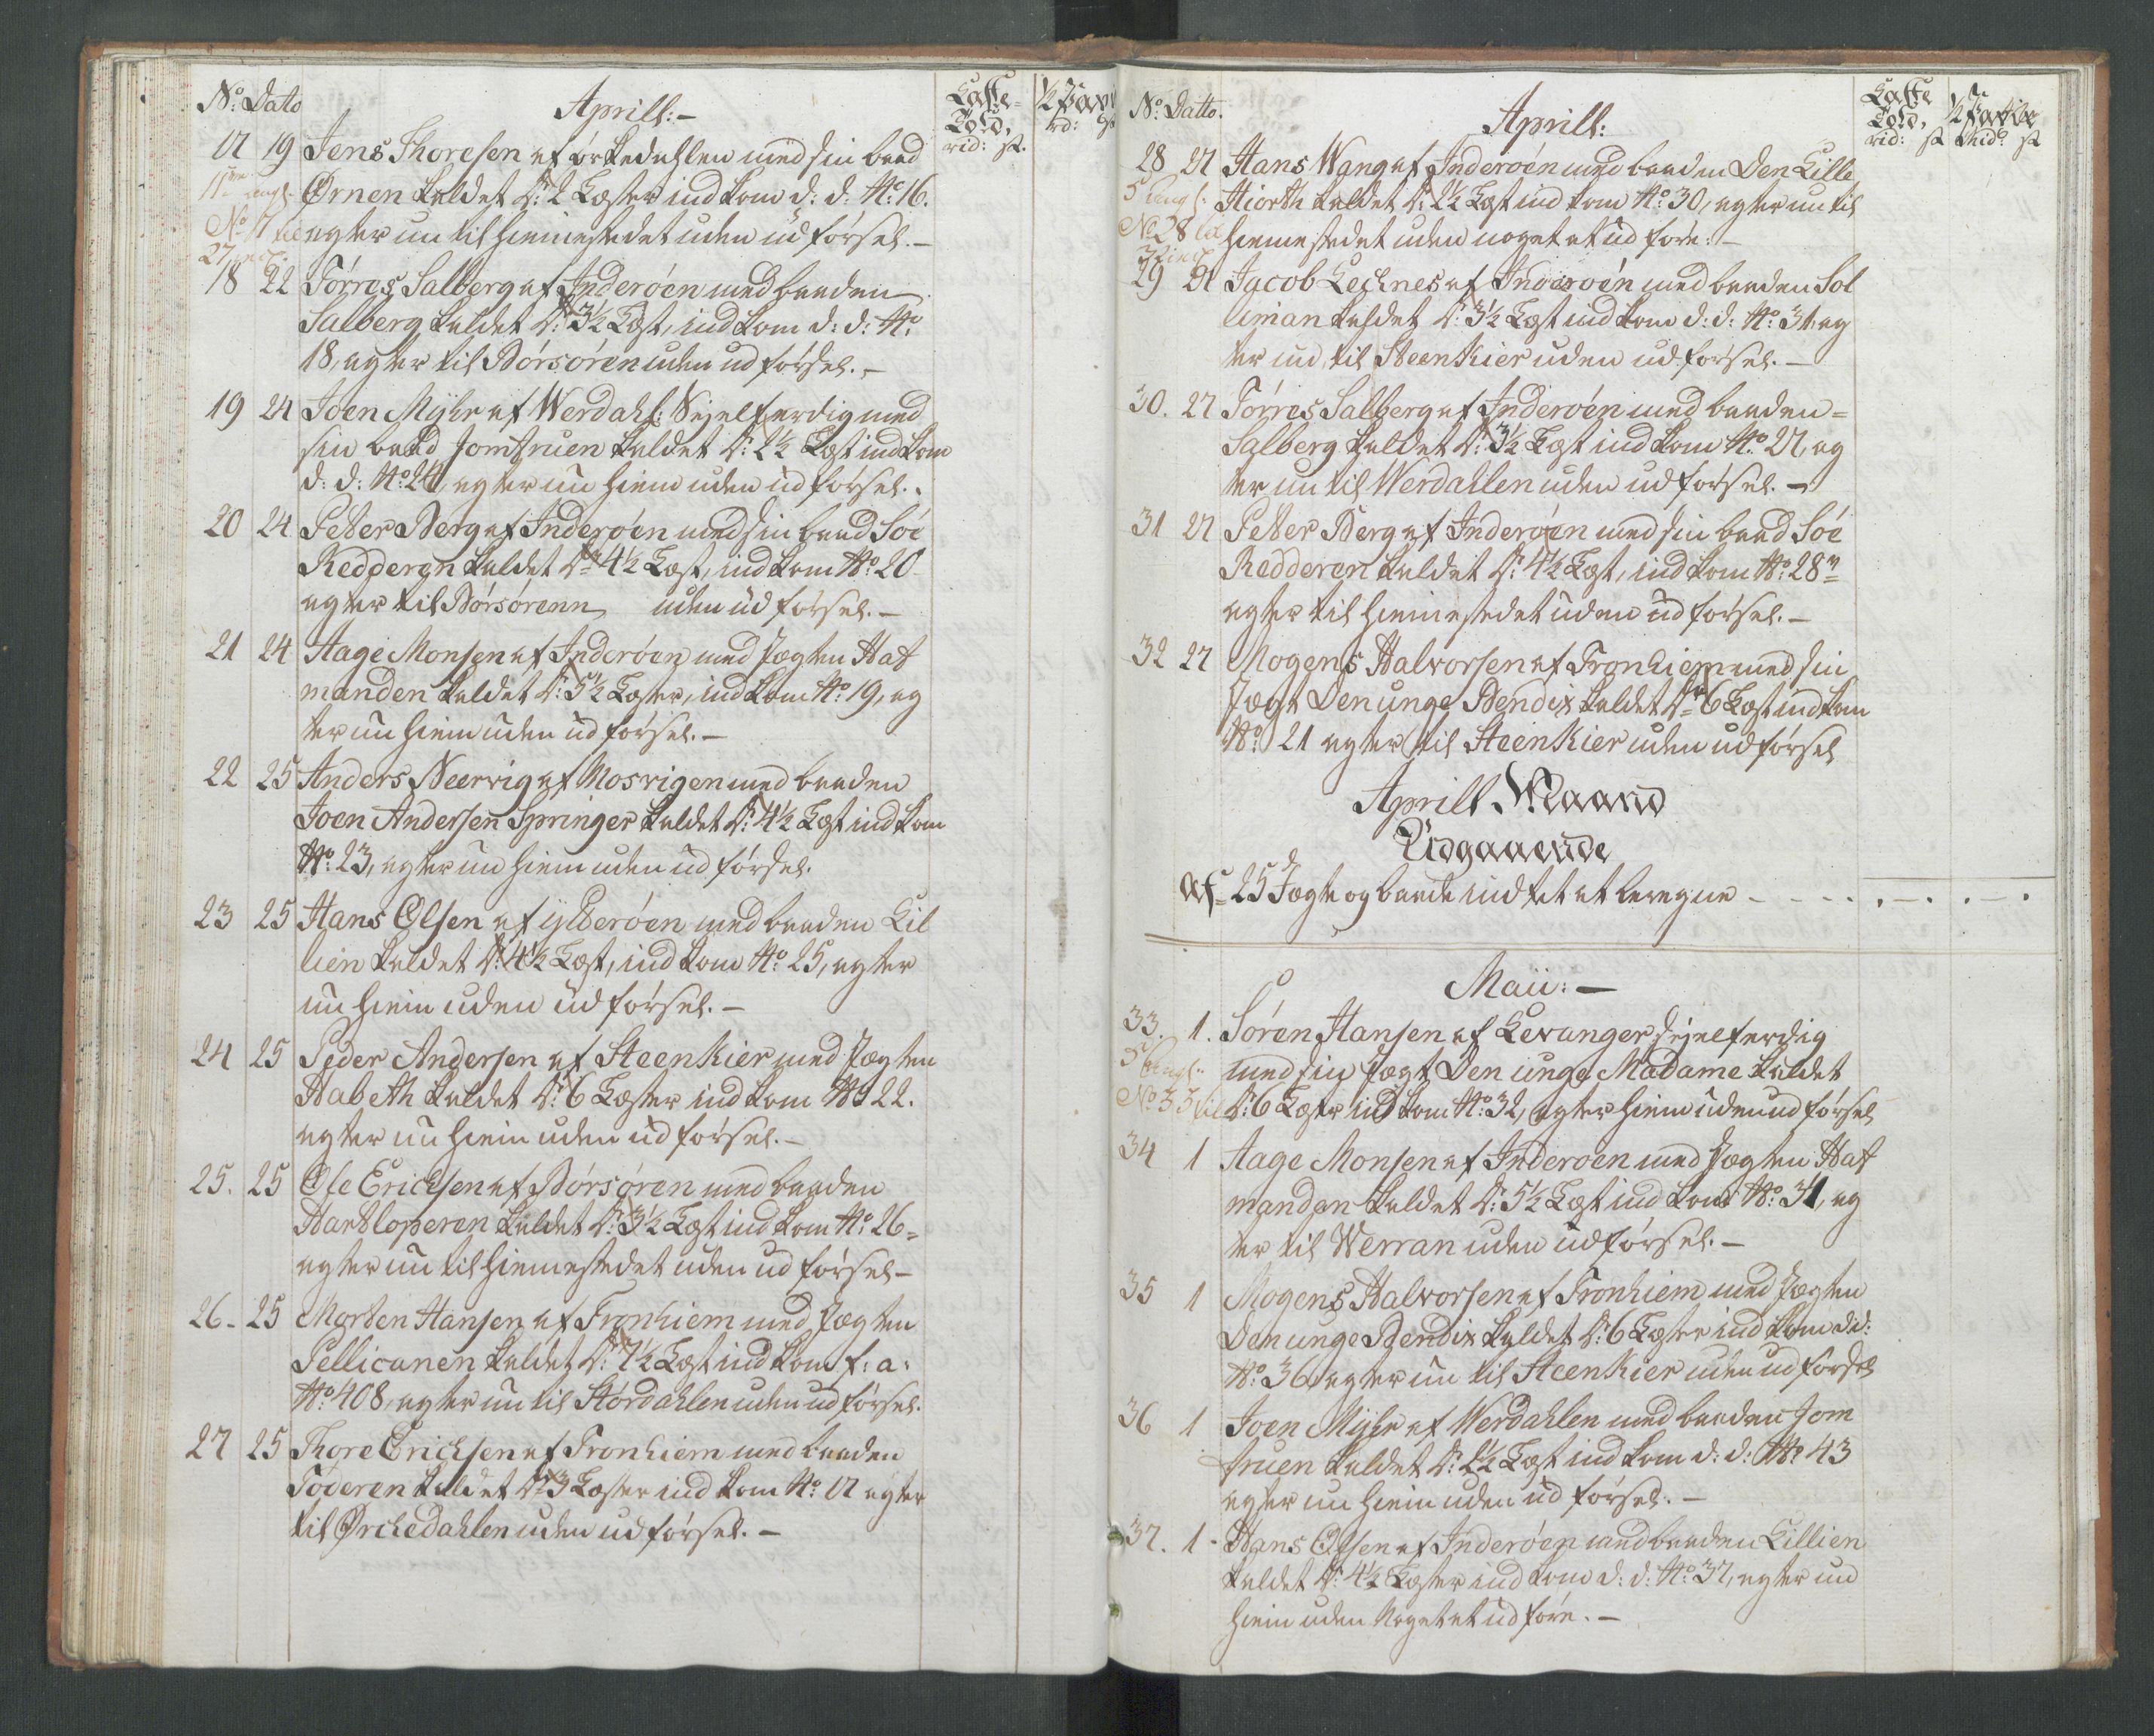 No: Dato
Aprill:-
Laste-
Told,
rd: s.
½ Part
rd: s
17 19 Jens Thoresen af ørkedahlen med sin baad
Ørnen kaldet dr: 2 Læster ind kom d: d: No: 16.
agter nu til hiemmestedet uden udførsel.-
11te angl.
No 17 til
27
18 22 Törres Salberg af Inderøen med baaden
Salberg kaldet dr: 3½ Læst, ind kom d: d: No:
18, agter til Börsören uden udførsel.-
19 24 Joen Myhr af Werdahl: Sejelferdig med
sin baad Jomfruen kaldet dr: 2½ Læst ind kom
d: d: No: 24, agter nu hiem uden udførsel.
20 24 Petter Berg af Inderöen med sin baad Söe
Redderen kaldet dr 4½ Læst, ind kom No: 20
agter til Börsörenn uden udførsel.-
21 24 Aage Monsen af Inderöen med Jægten Haf
manden kaldet dr: 5½ Læster, ind kom No: 19, ag
ter nu hiem uden udførsel.-
22 25 Anders Neervig af Mosvigen med baaden
Joen Andersen Springer kaldet dr: 4½ Læst ind kom
No: 23, agter nu hiem uden udførsel.
23 25 Hans Olsen af ytterøen med baaden Lil
lien kaldet dr: 4½ Læst, ind kom No: 25, agter
nu hiem uden udførsel.-
24 25 Peder Andersen af Steenkier med Jægten
Habeth kaldet dr: 6 Læster ind kom No 22.
agter nu hiem uden udførsel.-
25. 25 Ole Erichsen af Börsören med baaden
Hartloperen kaldet dr: 3½ Læst ind kom No: 26-
agter nu til hiemmestedet uden udførsel-
26- 25 Morten Hansen af Tronhiem med Jægten
Pellicanen kaldet dr: 7½ Læst ind kom f: a:
No: 408, agter nu til Stördahlen uden udførsel.
27 25 Thore Erichsen af Tronhiem med baaden
Töderen kaldet dr 3 Læster ind kom No: 17 agter
til Ørchedahlen uden udførsel.-
No: Datto.
Aprill:
Laste
Told,
rid: s
½ Partie
Rid: s
28 27 Hans Wang af Inderöen med baaden Den Lille
Hiorth kaldet dr: 2½ Læst ind kom No: 30, agter nu til
hiemmestedet uden noget at udføre:-
5 angl:
No 28 til
29 27 Jacob Lechnes af Inderöen med baaden Sol
liman kaldet dr: 3½ Læst ind kom d: d: No: 31, ag
ter nu til Steenkier uden udførsel.-
30. 27 Törres Salberg af Inderöen med baaden-
Salberg kaldet dr: 3½ Læst ind kom No: 27, ag
ter nu til Werdahlen uden udførsel.-
31 27 Petter Berg af Inderöen med sin baad Söe
Redderen kaldet dr: 4½ Læst, ind kom No: 28
agter til hiemmestedet uden udførsel.-
32 27 Mogens Halvorsen af Tronhiem med sin
Jægt Den unge Bendix kaldet dr 6 Læst ind kom
No: 21 agter til Steenkier uden udførsel
Aprill Maand
Udgaaende
af 25 Jægte og baade indtet at beregne - - - - . - . - .
Maii:-
33. 1. Sören Hansen af Levanger sejelferdig
med sin Jægt Den unge Madame kaldet
dr: 6 Læster ind kom No: 32, agter hiem uden udførsel
5 angl:
No 33 til
34 1 Aage Monsen af Inderöen med Jægten Haf
manden kaldet dr: 5½ Læst ind kom No: 34, ag
ter til Werran uden udførsel.-
35 1 Mogens Halvorsen af Tronhiem med Jægten
Den unge Bendix kaldet dr: 6 Læster ind kom d: d:
No: 36, agter nu til Steenkier uden udførsel
36 1 Joen Myhr af Werdahlen med baaden Jom
fruen kaldet dr: 2½ Læst ind kom d: d: No: 43
agter nu hiem uden udførsel.-
37. 1- Hans Olsen af Inderöen med baaden Lillien
kaldet dr: 4½ Læster ind kom d: d: No: 37, agter nu
hiem uden Noget at udføre.-